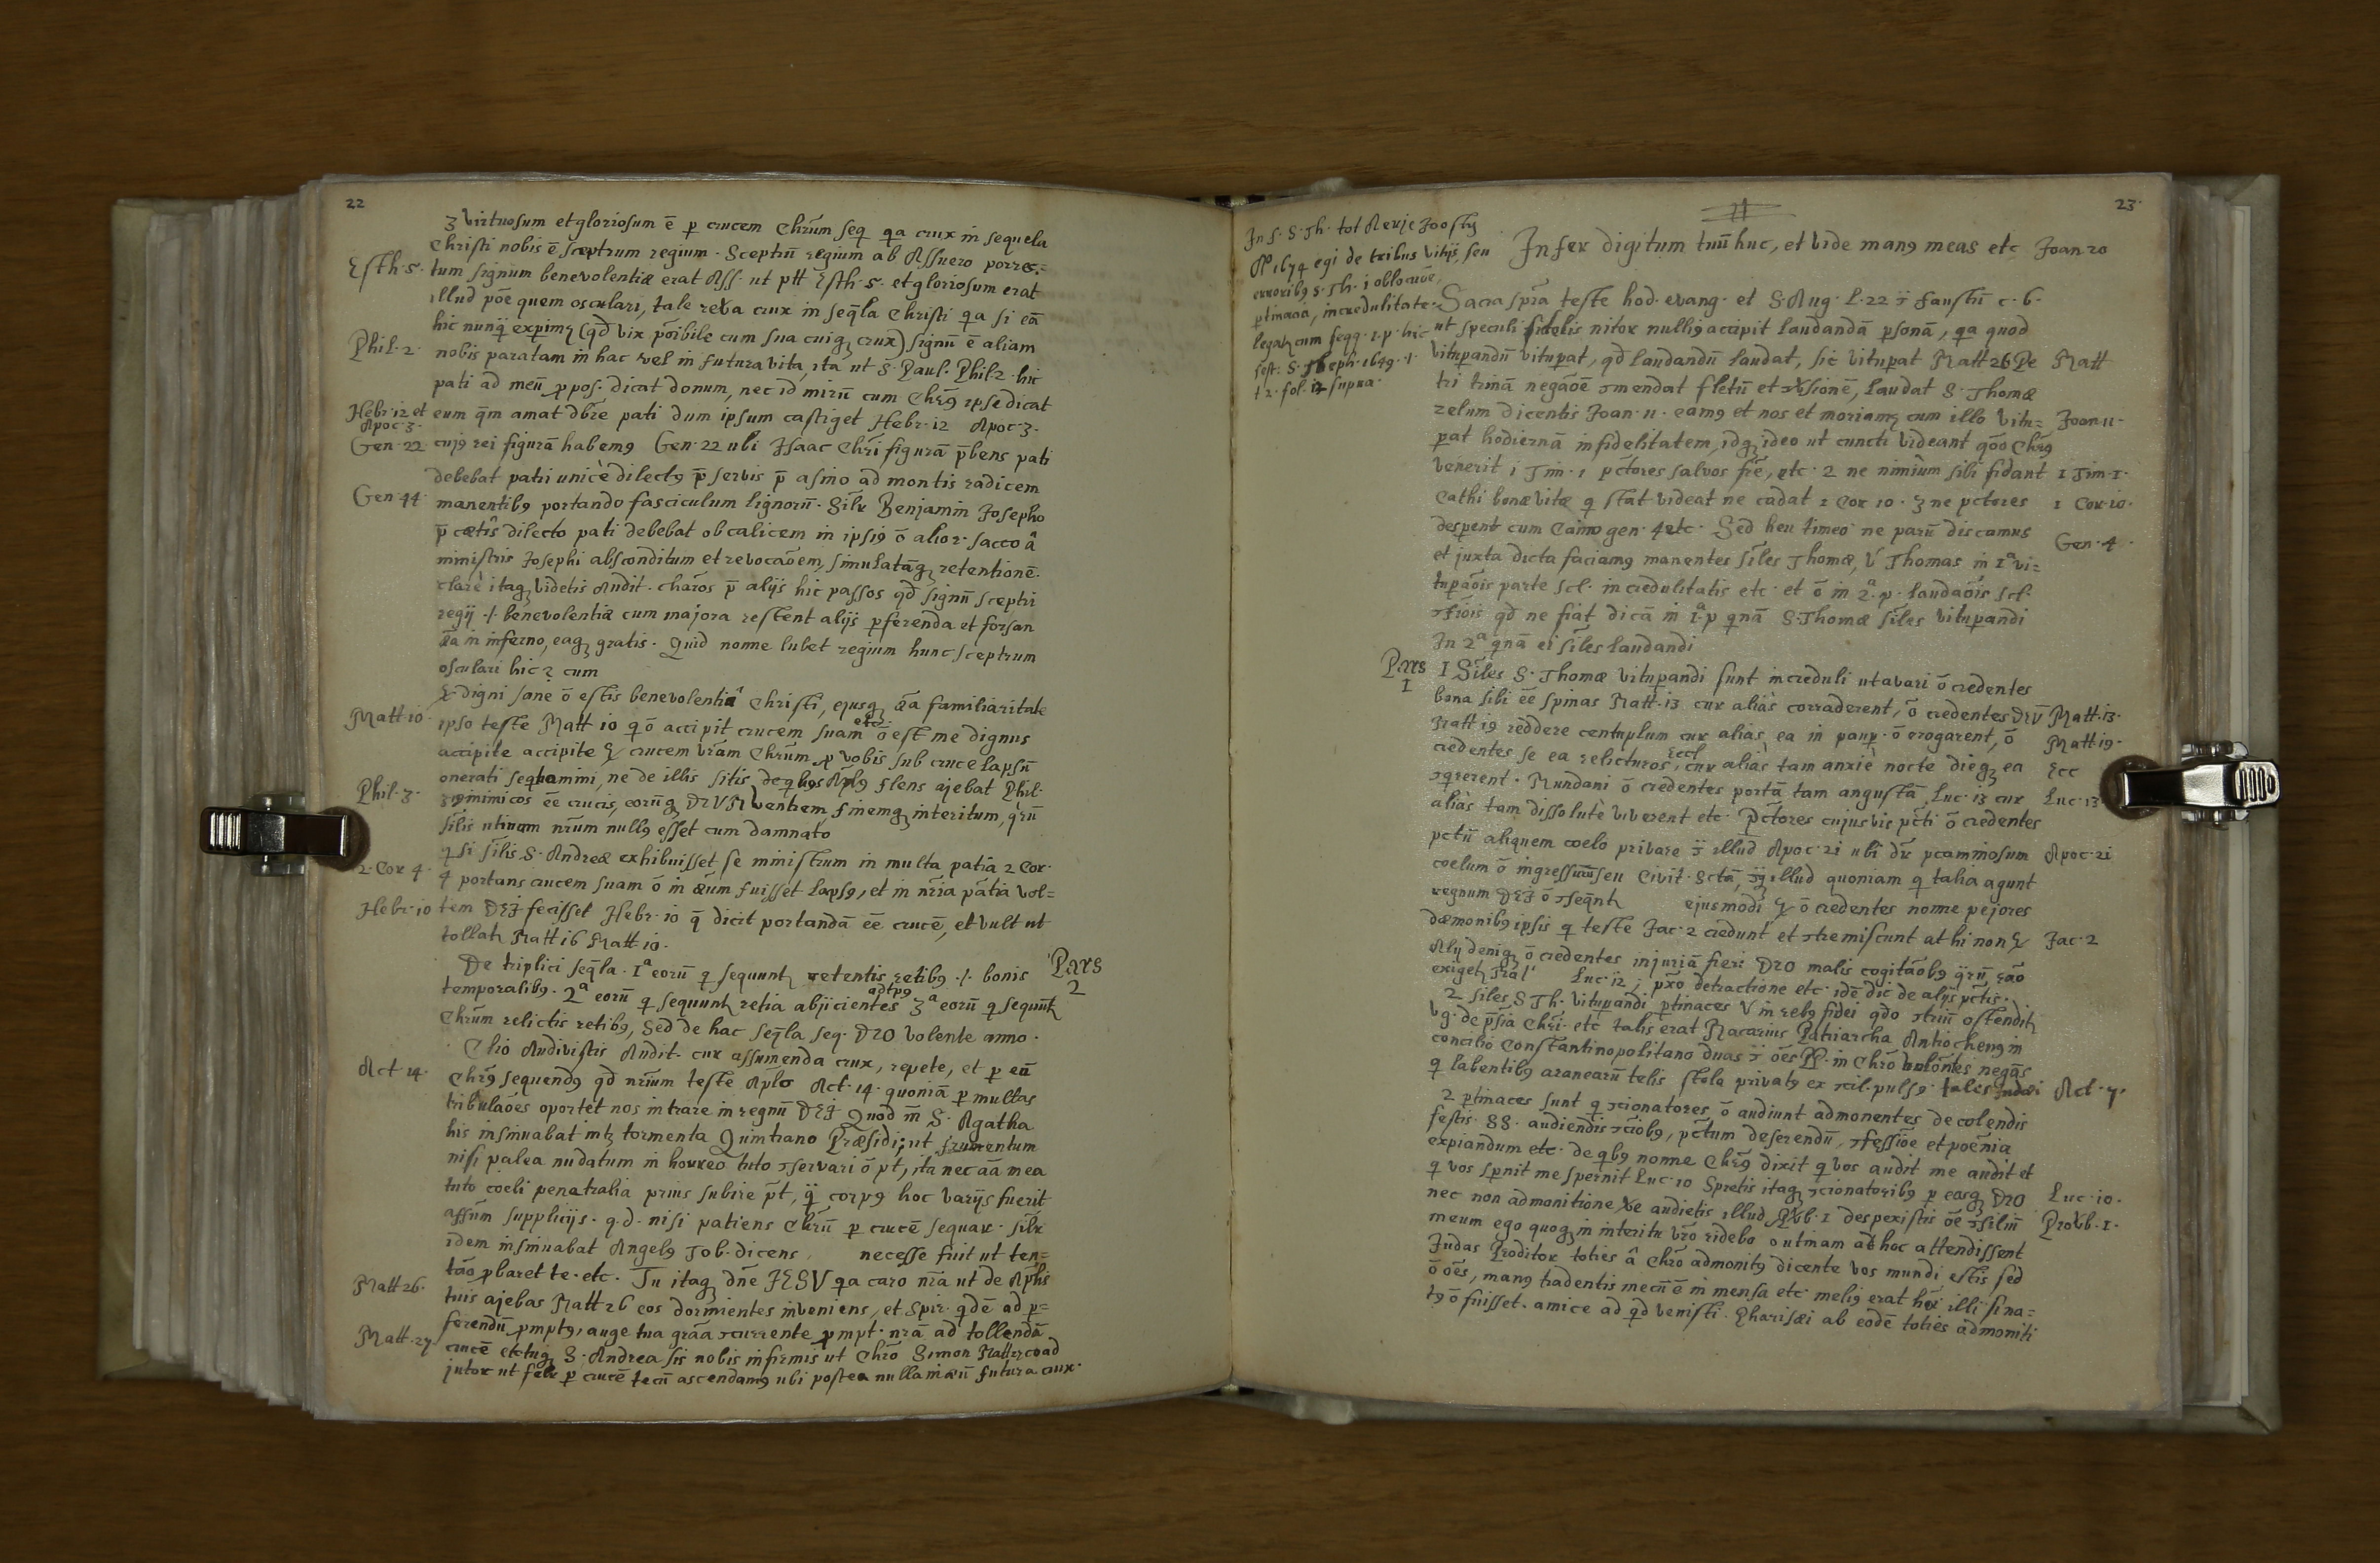 22
3 virtuosum et gloriosum ē p crucem Chrūm seq qa crux in sequela
Christi nobis ē sceptrum regium. Sceptrū regium ab Assuero porrec=
Esth. 5. tum signum benevolentiæ erat Ass. ut ptt Esth. 5. et gloriosum erat
illud põe quem osculari, tale rexa crux in seqla Christi qa si eā
hic nunq̄ expimꝫ (qd̄ vix põibile cum sua cuiqꝫ crux) signū ē aliam
Phil. 2. nobis paratam in hac vel in futura vita, ita ut S. Paul. Phil 2 hic
pati ad meū ppos. dicat donum, nec id mirū cum Chrꝰ ipse dicat
Hebr. 12 et Apoc. 3. eum q̄m amat dbr̄e pati dum ipsum castiget Hebr. 12 Apoc. 3.
Gen. 22 cujꝰ rei figurā habemꝰ Gen. 22 ubi Isaac Chrī figurā p̄bens pati
debebat patri unicè dilectꝰ p̄ servis p̄ asino ad montis radicem
Gen 44. manentibꝰ portando fasciculum lignorū. Silr Benjamin Josepho
p̄ cætis dilecto pati debebat ob calicem in ipsiꝰ ō alior. sacco â
ministris Josephi absconditum et revocaõem, simulatāqꝫ retentionē.
clarè itaqꝫ videtis Audit. charos p̄ alijs hic passos qd̄ signū sceptri
regij ./. benevolentiæ cum majora restent alijs pferenda et forsan
āa in inferno, eaqꝫ gratis. Quid nonne lubet regium hunc sceptrum
osculari hic? cum
& digni sanè ō estis benevolentiâ Christi, ejusqꝫ āa familiaritate
Matt 10. ipso teste Matt 10 q ō accipit crucem suam etc ō est me dignus
accipite accipite & crucem vr̄am Chrūm p vobis sub cruce lapsū
onerati seqtamini, ne de illis sitis de qbus Aplꝰ flens ajebat Phil.
Phil. 3. 3 inimicos ēe crucis, eorūqꝫ DEUM ventrem finemqꝫ interitum, qrū
silis utinam nr̄um nullꝰ esset cum damnato
q si silis S. Andreæ exhibuisset se ministrum in multa patiā 2 Cor.
2. Cor 4. 4 portans crucem suam ō in æūm fuisset lapsꝰ, et in nr̄ia patia vol=
Hebr. 10 tem DEI fecisset Hebr. 10 q̄ dicit portandā ēe crucē, et vult ut
tollatꝫ Matt 16 Matt 10.
De triplici seqla. 1ª eorū q sequuntꝫ retentis retibꝰ ./. bonis Pars 2
temporalibꝰ. 2ª eorū q sequuntꝫ retia abjicientes ad tpꝰ 3ª eorū q sequūtꝫ
Chrūm relictis retibꝰ, Sed de hac seqla seq. DEO volente anno.
Clio Audivistis Audit. cur assumenda crux, repete, et p eū
Act 14. Chrꝰ sequendꝰ qd nr̄ium teste Aplo Act. 14. quoniā p multas
tribulaões oportet nos intrare in regnū DEI Quod m̄ S. Agatha
his insinuabat mtꝫ tormenta Quintiano Præsidi; ut frumentum
nisi palea nudatum in horreo tuto ɔservari ō pt, ita nec aāa mea
tuto coeli penetralia prius subire p̄t, q̄ corpꝰ hoc varijs fuerit
assūm supplicijs. q. d. nisi patiens Chrū p crucē sequar. silr
idem insinuabat Angelꝰ Tob. dicens, necesse fuit ut ten=
tāo pbaret te. etc. Tu itaqꝫ dn̄e JESU qa caro nr̄a ut de Aplis
Matt 26. tuis ajebas Matt 26 eos dormientes inveniens, et Spir. qdē ad p=
ferendū pmptꝰ, auge tua grāa ɔcurrente pmpt. nr̄ā ad tollendā
Matt. 27 crucē etc tuqꝫ S. Andrea sis nobis infirmis ut Chrō Simon Matt 27 coad
jutor ut fel p crucē tecū ascendamꝰ ubi postea nulla in æū futura crux.
23.
In f. S. Th. tot Merie Joostꝰ
Aº 1674 egi de tribus vitijs, seu
erroribꝰ S. Th. i oblocuõe,
ptinacia, incredulitate.
legatꝫ cum seqq. 1. p. hic
fest. S. Steph. 1649 ./.
t 2. fol. 12 supra.
21
Infer digitum tuū huc, et vide manꝰ meas etc Joan 20
Sacra sp̄ra teste hod. evang. et S. Aug. L. 22 ɔ̄ Faustū c. 6.
ut speculi fidelis nitor nulliꝰ accipit laudandā psonā, qa quod
vitupandū vitupat, qd laudandū laudat, sic vitupat Matt 26 Pe Matt
tri trinā negāoē ɔmendat fletū et ɔvsionē, laudat S. Thomæ
zelum dicentis Joan. 11. eamꝰ et nos et moriamꝫ cum illo vitu= Joan 11.
pat hodiernā infidelitatem, idqꝫ ideo ut cuncti videant qōo Chrꝰ
venerit 1 Tim. 1 pctores salvos fr̄e, etc. 2 ne nimiūm sibi fidant 1 Tim. 1.
Cathi bonæ vitæ q stat videat ne cadat 1 Cor 10. 3 ne pctores 1 Cor. 10.
despent cum Caino gen. 4 etc. Sed heu timeo ne parū discamus Gen. 4.
et juxta dicta faciamꝰ manentes sīles Thomæ, V Thomas in 1ª vi=
tupaōis parte scl. incredulitatis etc. et ō in 2ª. p. laudaōis scl.
ɔfiōis qd ne fiat dicā in 1ª p qnā S. Thomæ sīles vitupandi
In 2ª qnā ei sīles laudandi
Pars 1 1 Sīles S. Thomæ vitupandi sunt increduli ut avari ō credentes
bona sibi ēe spinas Matt. 13 cur aliàs corraderent, ō credentes DEŪ Matt. 13.
Matt 19 reddere centuplum cur aliàs ea in paup. ō erogarent, ō Matt 19.
credentes se ea relicturos Eccl cur aliàs tam anxiè nocte dieqꝫ ea Ecc
ɔqrerent. Mundani ō credentes portā tam angustā Luc. 13 cur Luc. 13
aliàs tam dissolutè viverent etc. Pctores cujusvis pcti ō credentes
pctū aliquem coelo privare ɔ̄ illud Apoc. 21 ubi dr̄ pcaminosum Apoc. 21
coelum ō ingressurū seu Civit. Sctā, ɔqꝫ illud quoniam q talia agunt
regnum DEI ō ɔseqntꝫ ejusmodi & ō credentes nonne pejores
dæmonibꝰ ipsis q teste Jac. 2 credunt et ɔtremiscunt at hi non & Jac. 2
Alij deniqꝫ ō credentes injuriā fieri DEO malis cogitāobꝰ qrū rāo
exigetꝫ Luc. 12, pxo detractione etc. idē dic de alijs pctis.
2 sīles S Th. vitupandi ptinaces V in rebꝰ fidei qdo ɔtriū ostenditꝫ
vg. de psia Chri. etc talis erat Macarius Patriarcha Antiochenꝰ in
concilio Constantinopolitano duas ɔ̄ ōes PP. in Chrō volōntes negās
q labentibꝰ aranearū telis stola privatꝰ ex ɔcil. pulsꝰ tales Judæi Act. 7.
2 ptinaces sunt q ɔcionatores ō audiunt admonentes de colendis
festis. SS. audiendis ɔciobꝰ, pctum deserendū, ɔfessiōe et poenia
expiandum etc. de qbꝰ nonne Chrꝰ dixit q vos audit me audit et
q vos spnit me spernit Luc. 10 Spretis itaqꝫ ɔcionatoribꝰ p easqꝫ DEO Luc. 10.
nec non admonitione Xe audietis illud Prvb. 1 despexistis ōe ɔsiliū Provb. 1.
meum ego quoqꝫ in interitu vr̄o ridebo o utinam ad hoc attendissent
Judas Proditor toties â Chrō admonitꝰ dicente vos mundi estis sed
ō ōes, manꝰ tradentis mecū ē in mensa etc meliꝰ erat hōi illi si na=
tꝰ ō fuisset. amice ad qd venisti. Pharisæi ab eodē toties admoniti